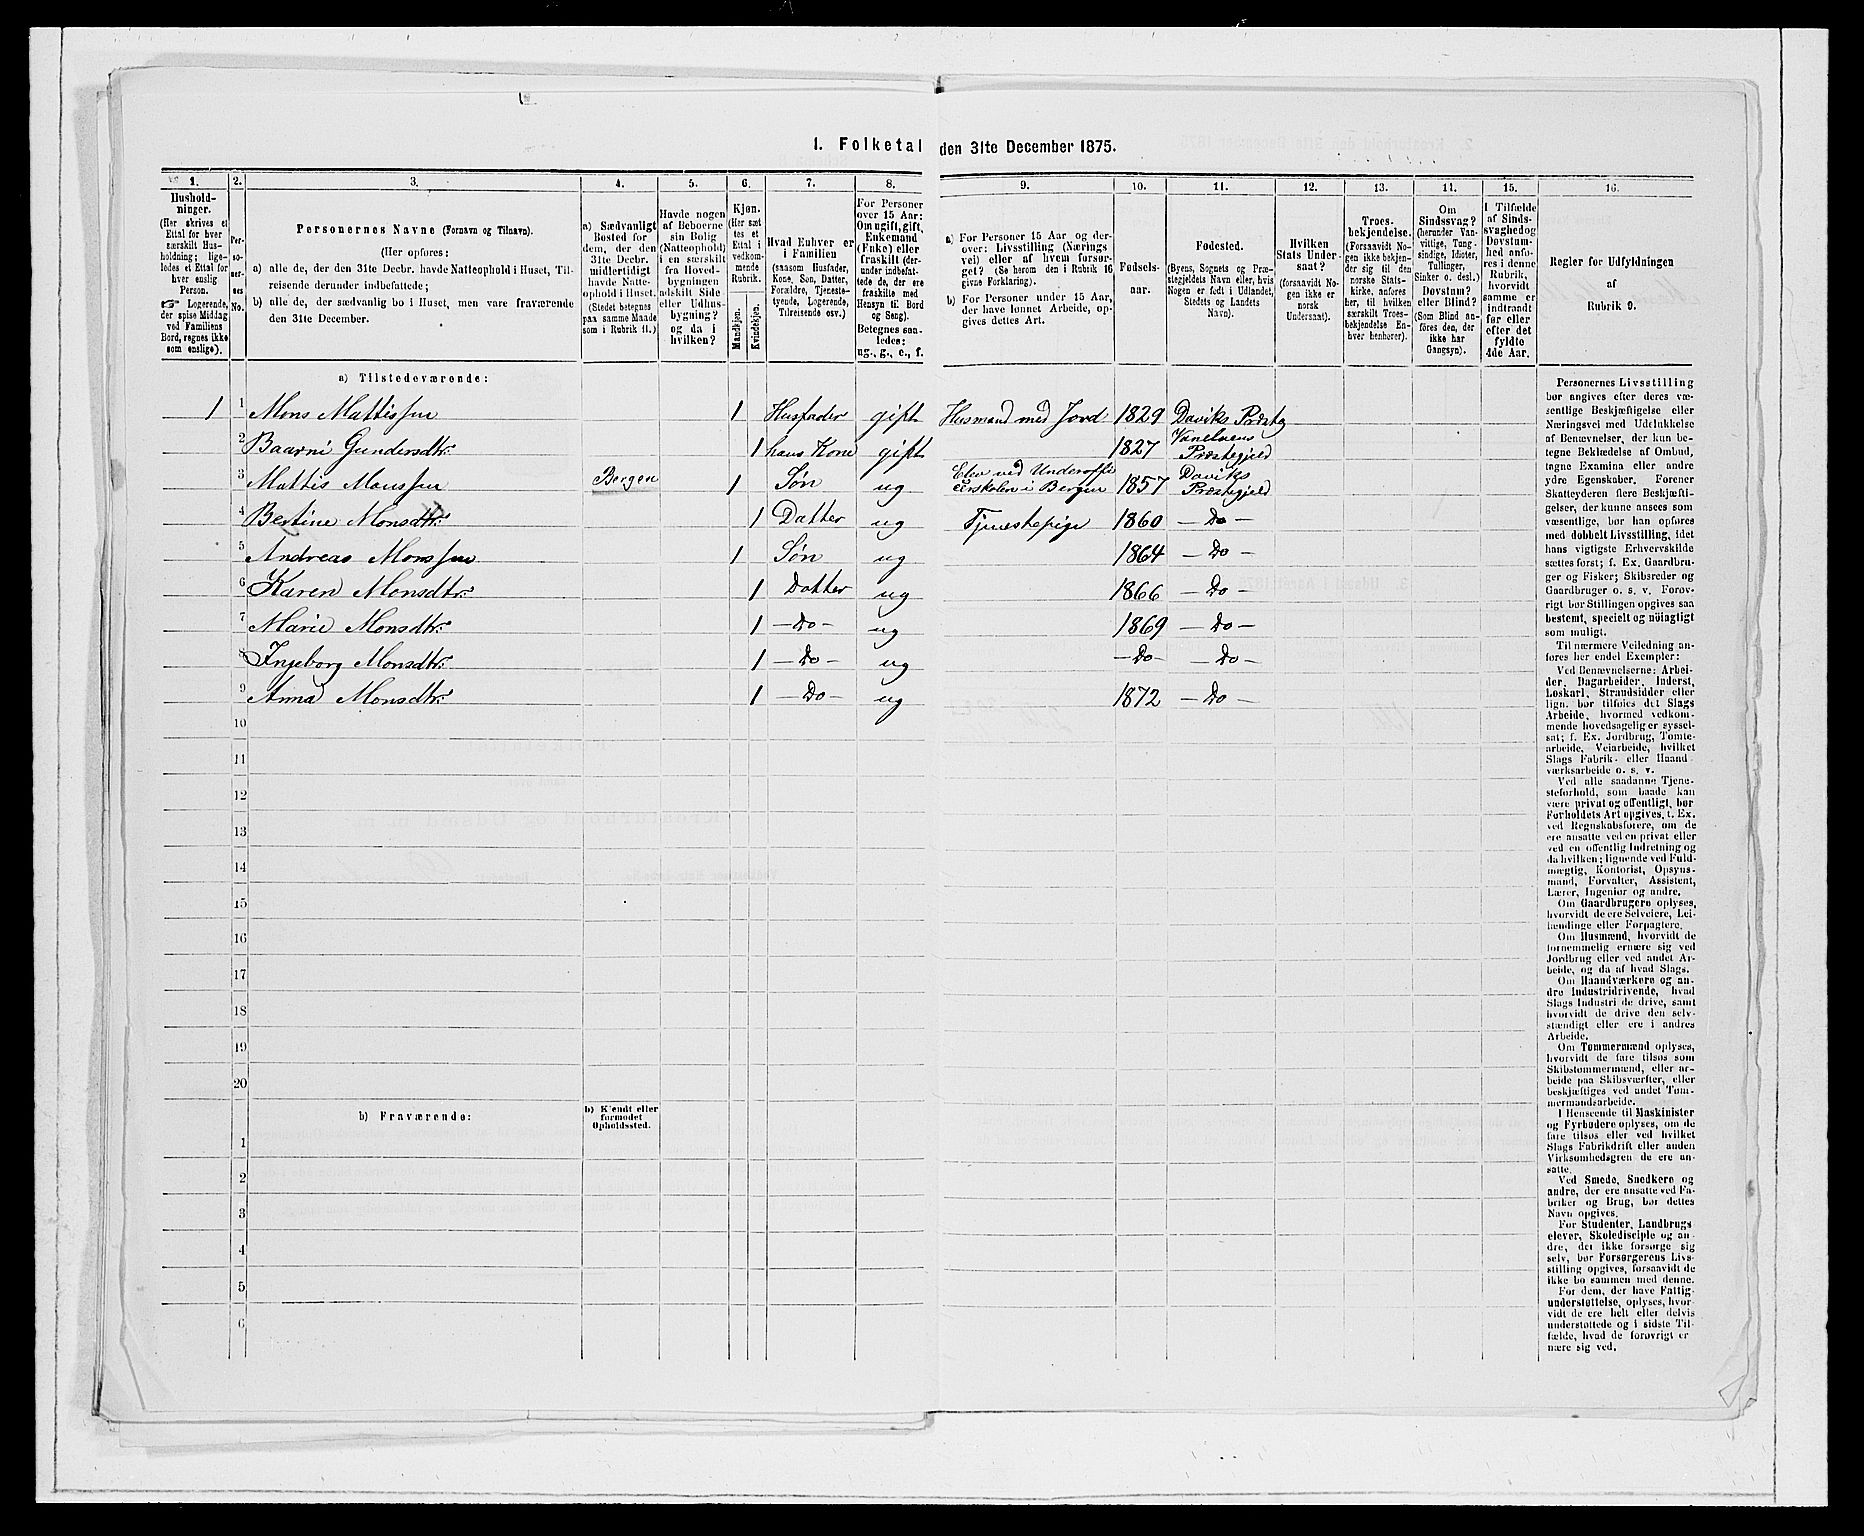 1. Folketal den 31te December 1875.
1. 2. 3. 4. 5. 6. 7. 8. 9. 10. 11. 12. 13. 14. 15. 16.
Husholdninger.
(Her skrives et
Ettal for hver
særskilt Husholdning;
ligeledes et Ettal for
hver enslig
Person.
☞ Logerende,
der spise Middag
ved Familiens
Bord, regnes ikke
som enslige).
Personernes No.
Personernes Navne (Fornavn og Tilnavn).
(Her opføres:
a) alle de, der den 31te Decbr. havde Natteophold i Huset, Tilreisende
derunder indbefattede;
b) alle de, der sædvanlig bo i Huset, men vare fraværende
den 31te December.
a) Sædvanligt
Bosted for
dem, der den
31te Decbr.
midlertidigt
havde Natteophold
i Huset.
(Stedet betegnes
paa samme Maade
som i Rubrik 11.)
Havde nogen
af Beboerne
sin Bolig
(Natteophold)
i en særskilt
fra Hovedbygningen
adskilt Side-
eller Udhusbygning?
og da i
hvilken?
Kjøn.
(Her sættes
et
Ettal i
vedkommende
Rubrik.
Mandkjøn.
Kvindekjøn.
Hvad Enhver er
i Familien
(saasom Husfader,
Kone, Søn, Datter,
Forældre, Tjenestetyende,
Logerende,
Tilreisende osv.)
For Personer
over 15 Aar:
Om ugift, gift,
Enkemand
(Enke) eller
fraskilt (derunder
indbefattede
de, der ere
fraskilte med
Hensyn til Bord
og Seng).
Betegnes saaledes:
ug., g., e., f.
a) For Personer 15 Aar og derover:
Livsstilling (Næringsvei)
eller af hvem forsørget?
(Se herom den i Rubrik 16
givne Forklaring).
b) For Personer under 15 Aar,
der have lønnet Arbeide, opgives
dettes Art.
Fødselsaar.
Fødested.
(Byens, Sognets og Præstegjeldets
Navn eller, hvis
Nogen er født i Udlandet,
Stedets og Landets
Navn).
Hvilken
Stats Undersaat?
(forsaavidt Nogen
ikke er
norsk
Undersaat).
Troesbekjendelse.
(Forsaavidt Nogen
ikke bekjender
sig til den
norske Statskirke,
anføres
her, til hvilken
særskilt Troesbekjendelse
Enhver
henhører).
Om
Sindssvag?
(herunder Vanvittige,
Tungsindige,
Idioter,
Tullinger,
Sinker o. desl.)
Døvstum?
eller Blind?
(Som Blind anføres
den, der
ikke har
Gangsyn).
I Tilfælde
af Sindssvaghed
og
Døvstumhed
anføres
i denne
Rubrik,
hvorvidt
samme er
indtraadt
før eller
efter det
fyldte
4de Aar.
Regler for Udfyldningen
af
Rubrik 9.
a) Tilstedeværende:
1 1 Mons Mattissen 1 Husfader gift Husmand med Jord 1829 Daviks Præstg
2 Baarni Gundersdtr. 1 hans Kone gift 1827 Præstegjeld
3 Mattis Monssen Bergen 1 Søn ug Elev ved Underoffi cerskolen i Bergen 1857 Daviks Præstegjeld
4 Bertine Monsdtr. 1 Datter ug Tjenestepige 1860 — Do —
5 Andreas Monssen 1 Søn ug 1864 — Do —
6 Karen Monsdtr. 1 Datter ug 1866 — Do —
7 Marie Monsdtr. 1 — Do — ug 1869 — Do —
8 Ingeborg Monsdtr. 1 — Do — ug — Do — — Do —
9 Anna Monsdtr. 1 — Do — ug 1872 — Do —
10
11
12
13
14
15
16
17
18
19
20
b) Fraværende:
b) Kjendt eller
formodet
Opholdssted.
1
2
3
4
5
6
Personernes Livsstilling
bør angives efter deres væsentlige
Beskjæftigelse eller
Næringsvei med Udelukkelse
af Benævnelser, der kun betegne
Beklædelse af Ombud,
tagne Examina eller andre
ydre Egenskaber. Forener
Skatteyderen flere Beskjæftigelser,
der kunne ansees som
væsentlige, bør han opføres
med dobbelt Livsstilling, idet
hans vigtigste Erhvervskilde
sættes først; f. Ex. Gaardbruger
og Fisker; Skibsreder og
Gaardbruger o. s. v. Forøvrigt
bør Stillingen opgives saa
bestemt, specielt og nøiagtigt
som muligt.
Til nærmere Veiledning anføres
her endel Exempler:
Ved Benævnelserne: Arbeider,
Dagarbeider, Inderst,
Løskarl, Strandsidder eller
lign. bør tilføies det Slags
Arbeide, hvormed vedkommende
hovedsagelig er sysselsat;
f. Ex. Jordbrug, Tomtearbeide,
Veiarbeide, hvilket
Slags Fabrik- eller Haandværksarbeide
o. s. v.
Ved alle saadanne Tjenesteforhold,
som baade kan
være privat og offentligt, bør
Forholdets Art opgives, t. Ex.
ved Regnskabsførere, om de
ere ansatte ved en privat eller
ved en offentlig Indretning og
da hvilken; lignende ved Fuldmægtig,
Kontorist, Opsynsmand,
Forvalter, Assistent,
Lærer, Ingeniør og andre.
Om Gaardbrugere oplyses,
hvorvidt de ere Selveiere, Leilændinge
eller Forpagtere.
Om Husmænd, hvorvidt de
fornemmelig ernære sig ved
Jordbrug eller ved andet Arbeide,
og da af hvad Slags.
Om Haandværkere og andre
Industridrivende, hvad
Slags Industri de drive, samt
hvorvidt de drive den selvstændigt
eller ere i andres
Arbeide.
Om Tømmermænd oplyses,
hvorvidt de fare tilsøs som
Skibstømmermænd, eller arbeide
paa Skibsværfter, eller
beskjæftiges ved andet Tømmermandsarbeide.
I Henseende til Maskinister
og Fyrbødere oplyses, om de
fare tilsøs eller ved hvilket
Slags Fabrikdrift eller anden
Virksomhedsgren de ere ansatte.
Ved Smede, Snedkere og
andre, der ere ansatte ved Fabriker
og Brug, bør dettes
Navn opgives.
For Studenter, Landbrugselever,
Skoledisciple og andre,
der ikke forsørge sig
selv, bør Forsørgerens Livsstilling
opgives, forsaavidt de
ikke bo sammen med denne.
For dem, der have Fattigunderstøttelse,
oplyses, hvorvidt
de ere helt eller delvis
understøttede og i sidste Tilfælde,
hvad de forøvrigt ernære
sig ved.